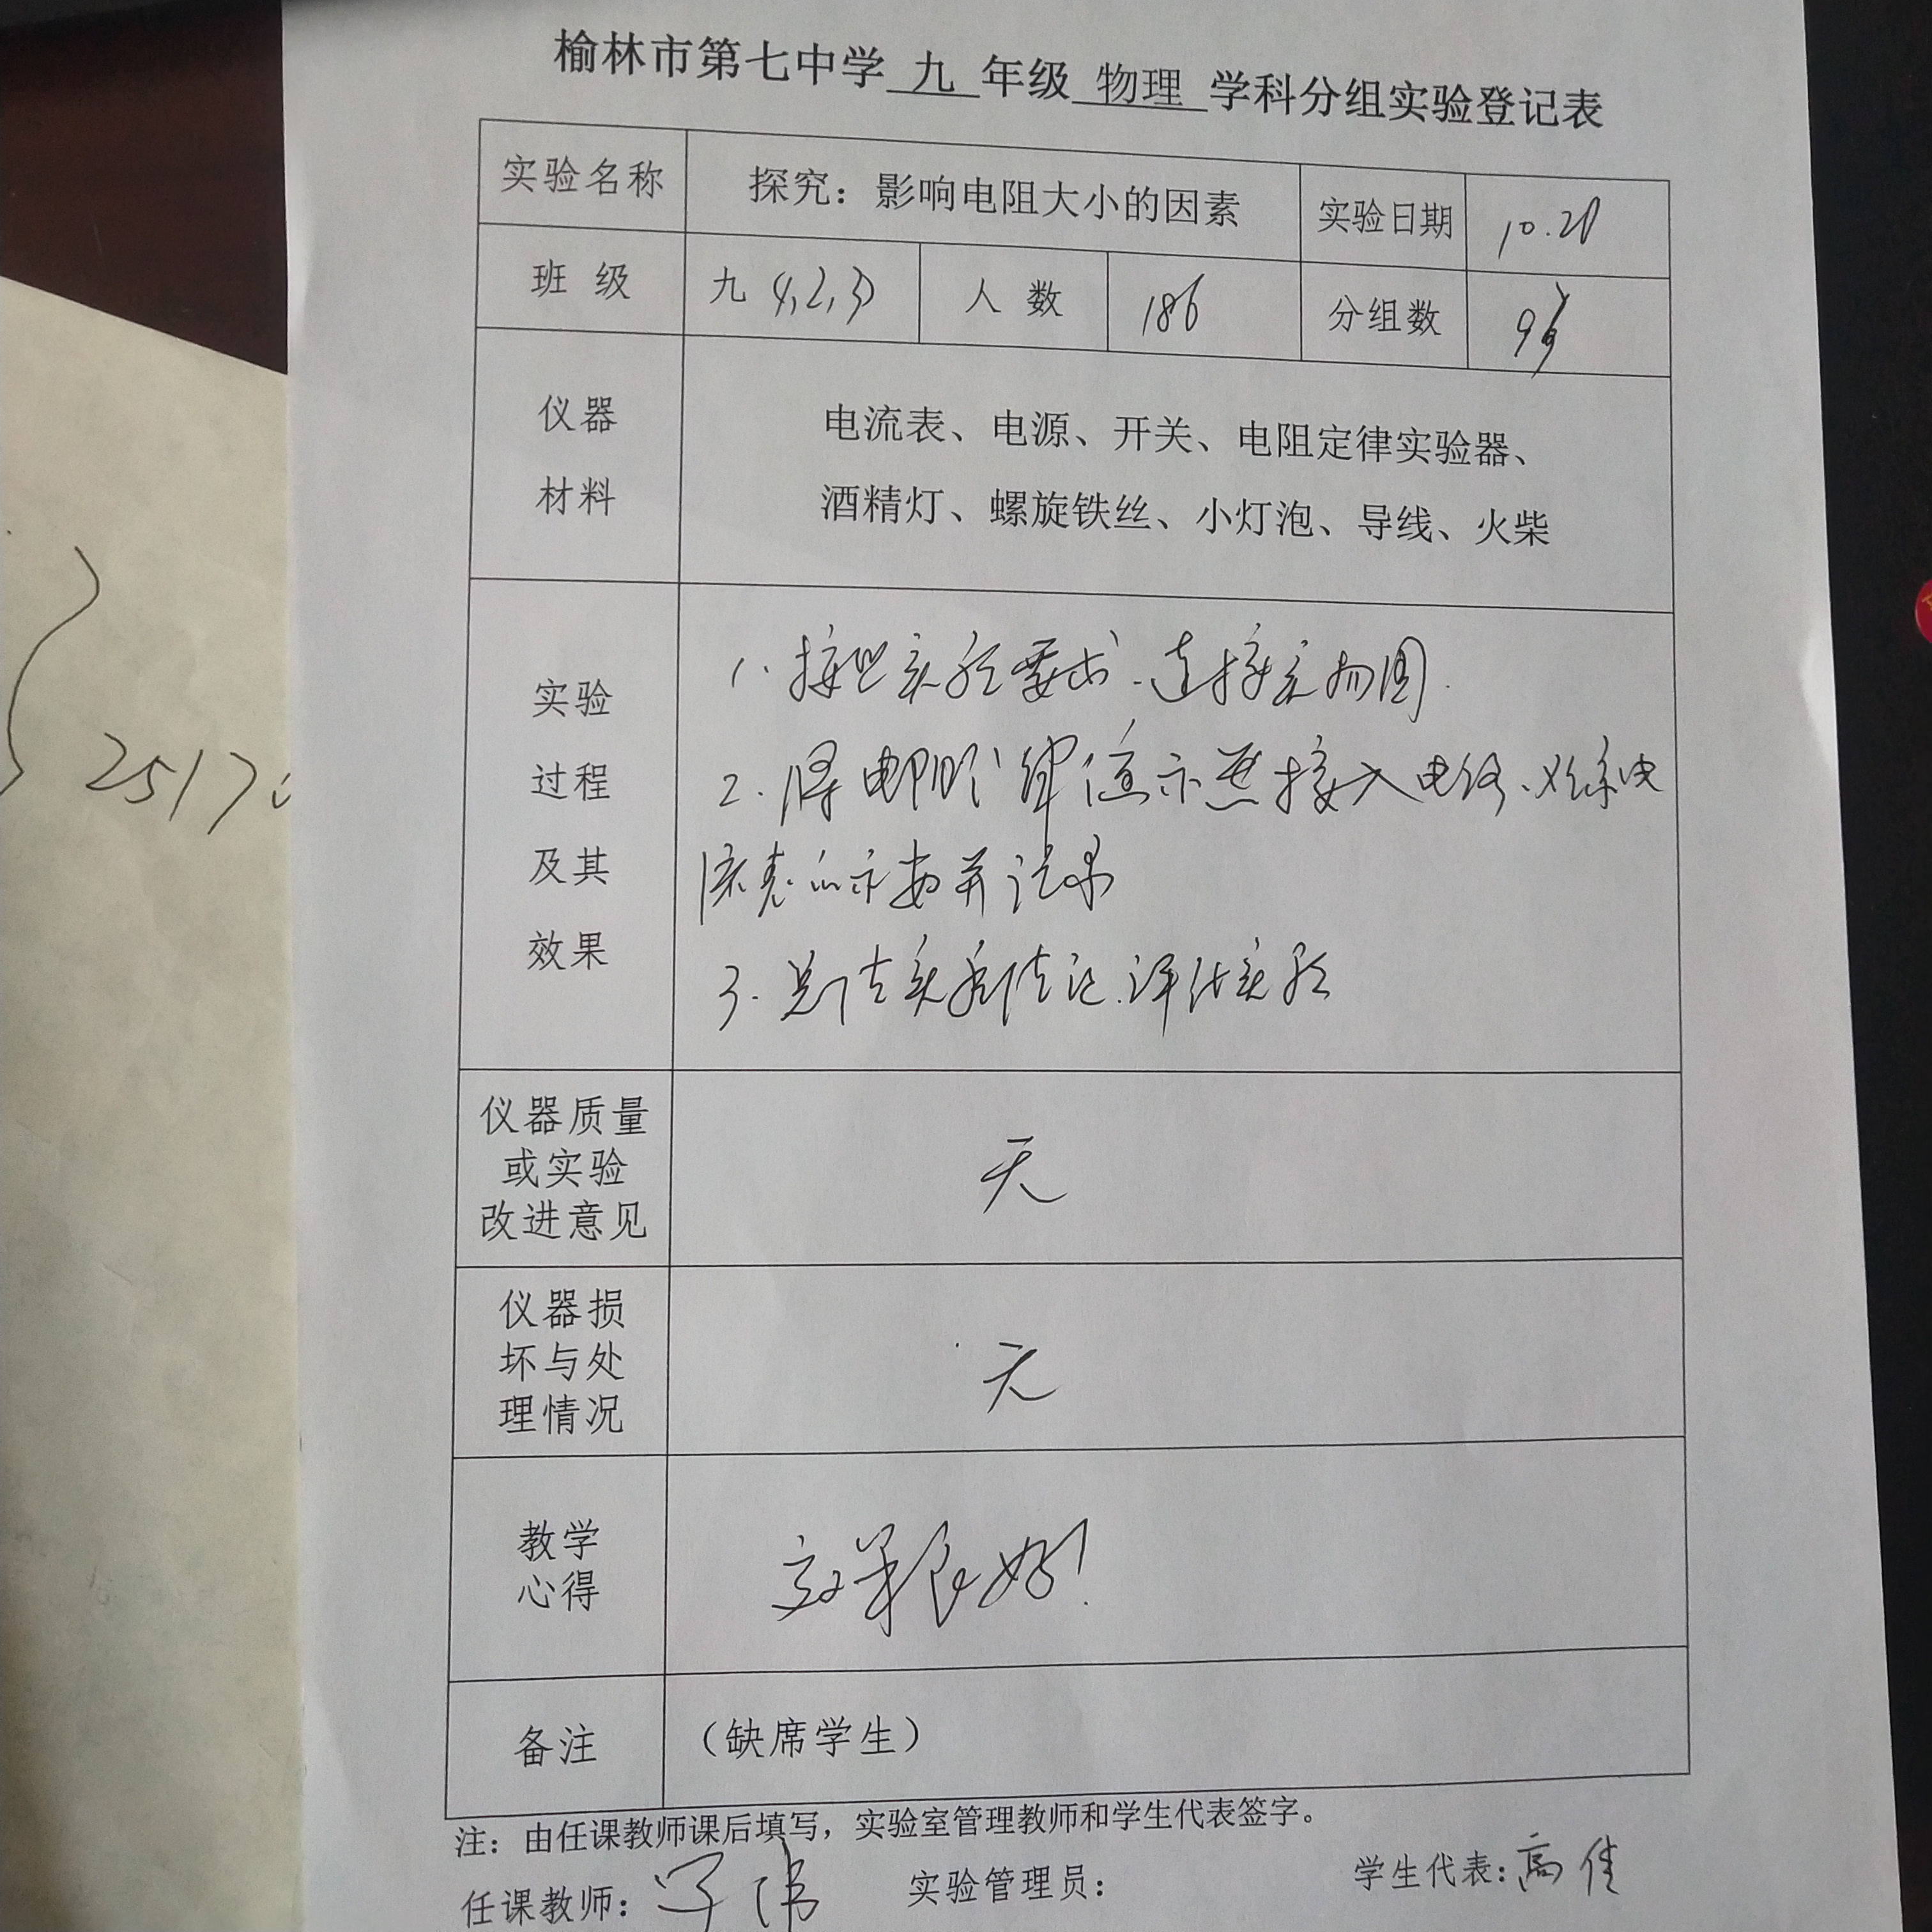 榆林市第七中学 九 年级 物理 学科分组实验登记表
实验名称 探究：影响电阻大小的因素 实验日期 10.21
班 级 九 (1,2,3) 人 数 186 分组数
仪器
材料
电流表、电源、开关、电阻定律实验器、
酒精灯、螺旋铁丝、小灯泡、导线、火柴
实验
过程
及其
效果
1. 按照实验要求、连接实物图.
2. 将电阻定律演示器接入电路、观察电
流表的示数并记录
3. 总结实验结论.评估实验
仪器质量
或实验
改进意见
无
仪器损
坏与处
理情况
无
教学
心得
效果良好!
备注 （缺席学生）
注：由任课教师课后填写，实验室管理教师和学生代表签字。
任课教师： 实验管理员： 学生代表：高佳
2517